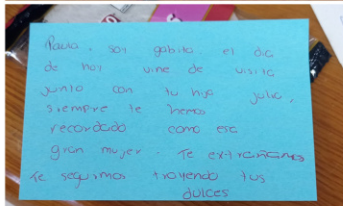 Paula, soy gabita. el dia
de hoy vine de visita
junto con tu hija julia,
siempre te hemos
recordado como esa
gran mujer. Te extrañamos
Te seguimos trayendo tus
dulces